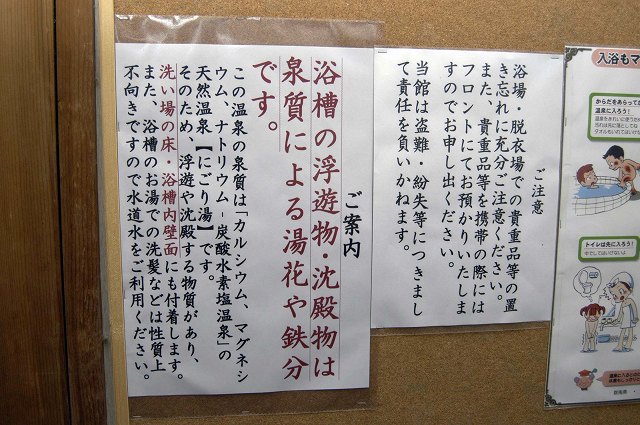 ご注意
浴場・脱衣場での貴重品等の置
き忘れに充分ご注意ください。
また、貴重品等を携帯の際には
フロントにてお預かりいたしま
すのでお申し出ください。
当館は盗難・紛失等につきまし
て責任を負いかねます。
ご案内
浴槽の浮遊物・沈殿物は
泉質による湯花や鉄分
です。
この温泉の泉質は「カルシウム、マグネシ
ウム、ナトリウム-炭酸水素塩温泉」の
天然温泉【にごり湯】です。
そのため、浮遊や沈殿する物質があり、
洗い場の床・浴槽内壁面にも付着します。
また、浴槽のお湯での洗髪などは性質上
不向きですので水道水をご利用ください。
入浴もマ
からだをあらってか
温泉に入ろう!
トイレは先に入ろう!
中でしてはいけないよ
群馬県